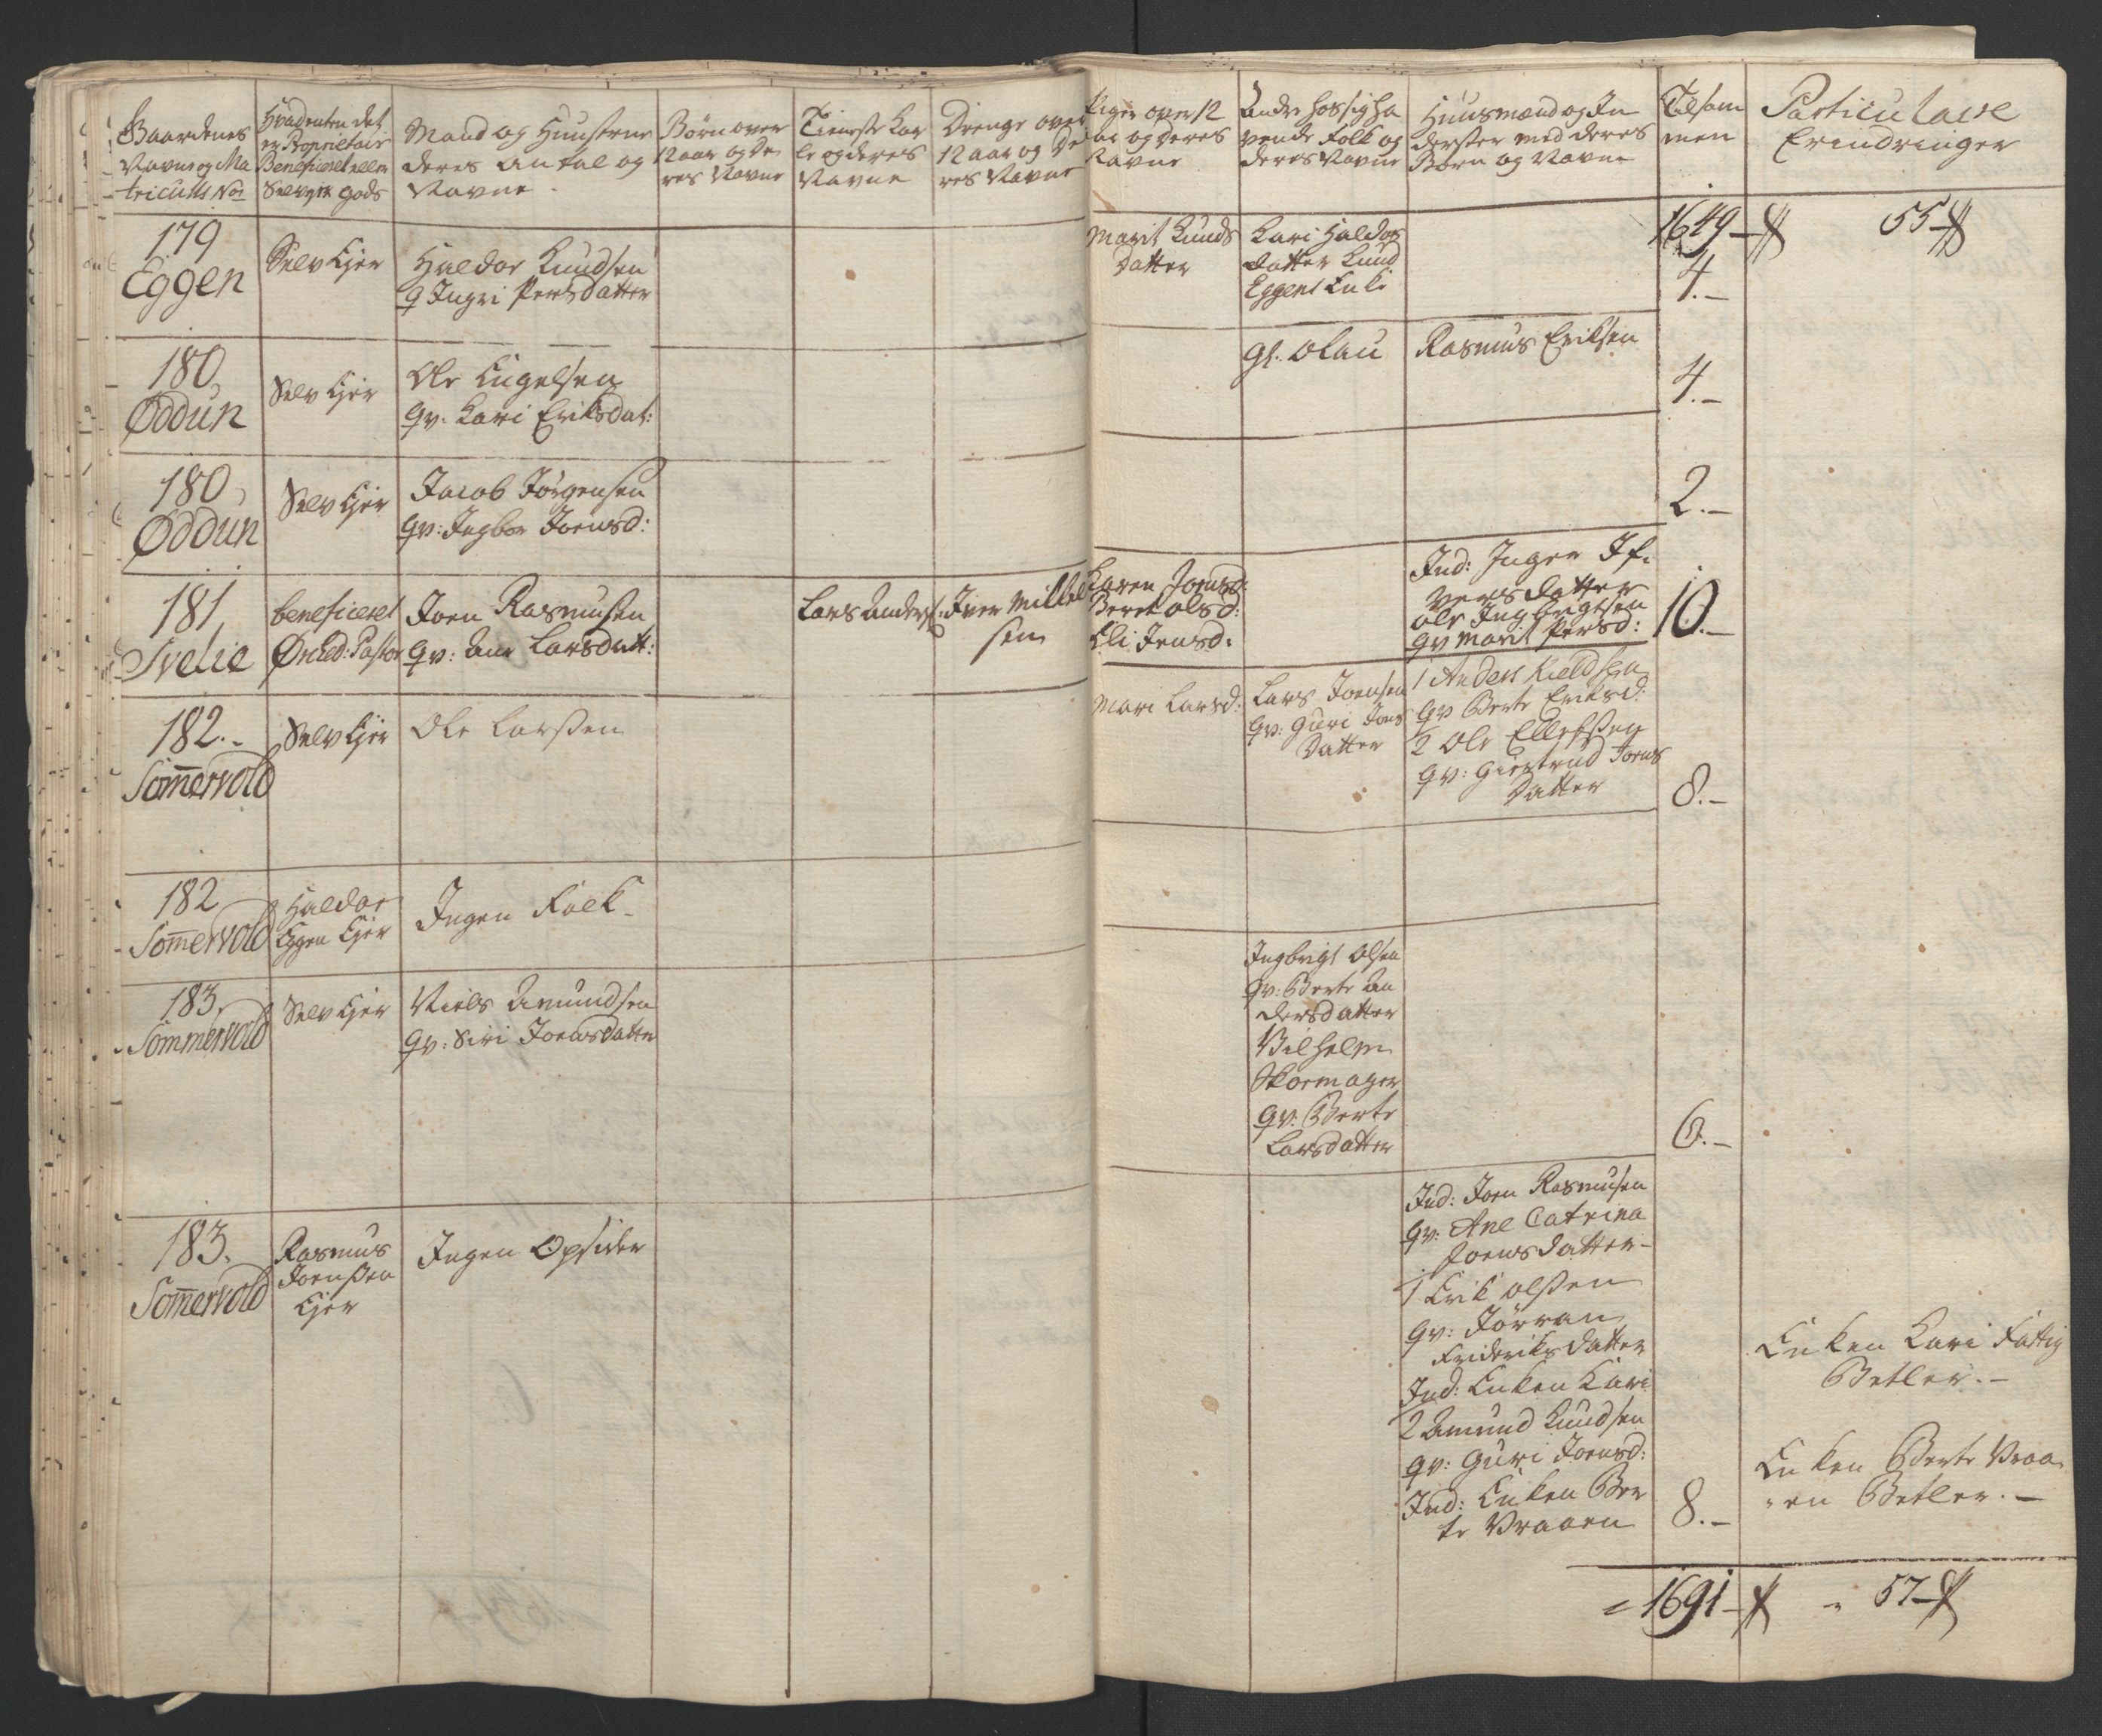 Gaardenes
Navne og Ma
triculs No
Hvadenten det
er Proprietair
Beneficeret eller
Selv Ejer gods
Mand og Hustrue
deres Antal og
Navne
Børn over
12 aar og De
res Navne
Tieneste Kar
le og deres
Navne
Drenge over
12 aar og De
res Navne
Piger over 12
aar og deres
Navne
Andre hos sig ha
vende Folk og
deres Navne
Huusmænd og In
derster med deres
Børn og Navne
Tilsam
men
Particulaire
Erindringer
1649
55
179
Eggen
Selv Ejer
Haldor Knudsen
Q Ingri Persdatter
Marit Knuds
Datter
Kari Haldors
datter Knud
Eggens Enke
4.-
180
Øddun
Selv Ejer
Ole Engelsen
Qv. Kari Eriksdat:
Gl. Olau
Rasmus Eriksen
4.-
180
Øddun
Selv Ejer
Jacob Jørgensen
Qv: Ingbor Joensd:
2.-
181
Svelie
beneficeret
Joen Rasmusen
Qv: Ane Larsdatt:
Lars Anders:
Iver Mikkel
sen
Karen Joensd:
Beret Olsd:
Eli Jensd:
Ind: Inger
Iversdatter
Ole Ingbrigtsen
Qv Marit Persd:
10.-
182.-
Somervold
Selv Ejer
Ole Larsen
Mari Larsd:
Lars Joensen
Qv: Guri Joens
Datter
1 Anders Kieldsen
Qv Berte Eriksd:
2 Ole Ellefsen
Qv: Giertrud Joens
Datter
8.-
182
Somervold
Haldor
Eggen Ejer
Ingen Folk-
183.
Sommervold
Selv Ejer
Niels Amundsen
Qv: Siri Joensdatter
Ingbrigt Olsen
Qv: Berte An
dersdatter
Vilhelm
Skoemager
Qv: Berte
Larsdatter
6.-
183.
Somervold
Rasmus
Joensen
Ejer
Ingen Opsider
Ind: Joen Rasmusen
Qv: Ane Catrina
Joensdatter-
1 Erik Olsen
Qv: Jørran
Frideriksdatter
Ind: Enken Kari
2 Amund Knudsen
Qv: Guri Joensd:
Ind: Enken Ber
te Vraaen
8.-
Enken Kari Fattig
Betler.-
Enken Berte Vraa
en Betler.-
1691
57